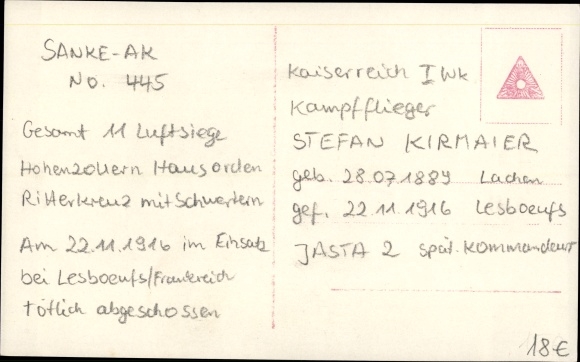 SANKE-AK
No. 445
Gesamt 11 Luftsiege
Hohenzollern Hausorden
Ritterkreuz mit Schwertern
Am 22.11.1916 im Einsatz
bei Lesboeufs/Frankreich
tötlich abgeschossen
Kaiserreich I Wk
Kampfflieger
STEFAN KIRMAIER
geb. 28.07.1889 Lachen
gef. 22.11.1916 Lesboeufs
JASTA 2 spät. Kommandeur
18€